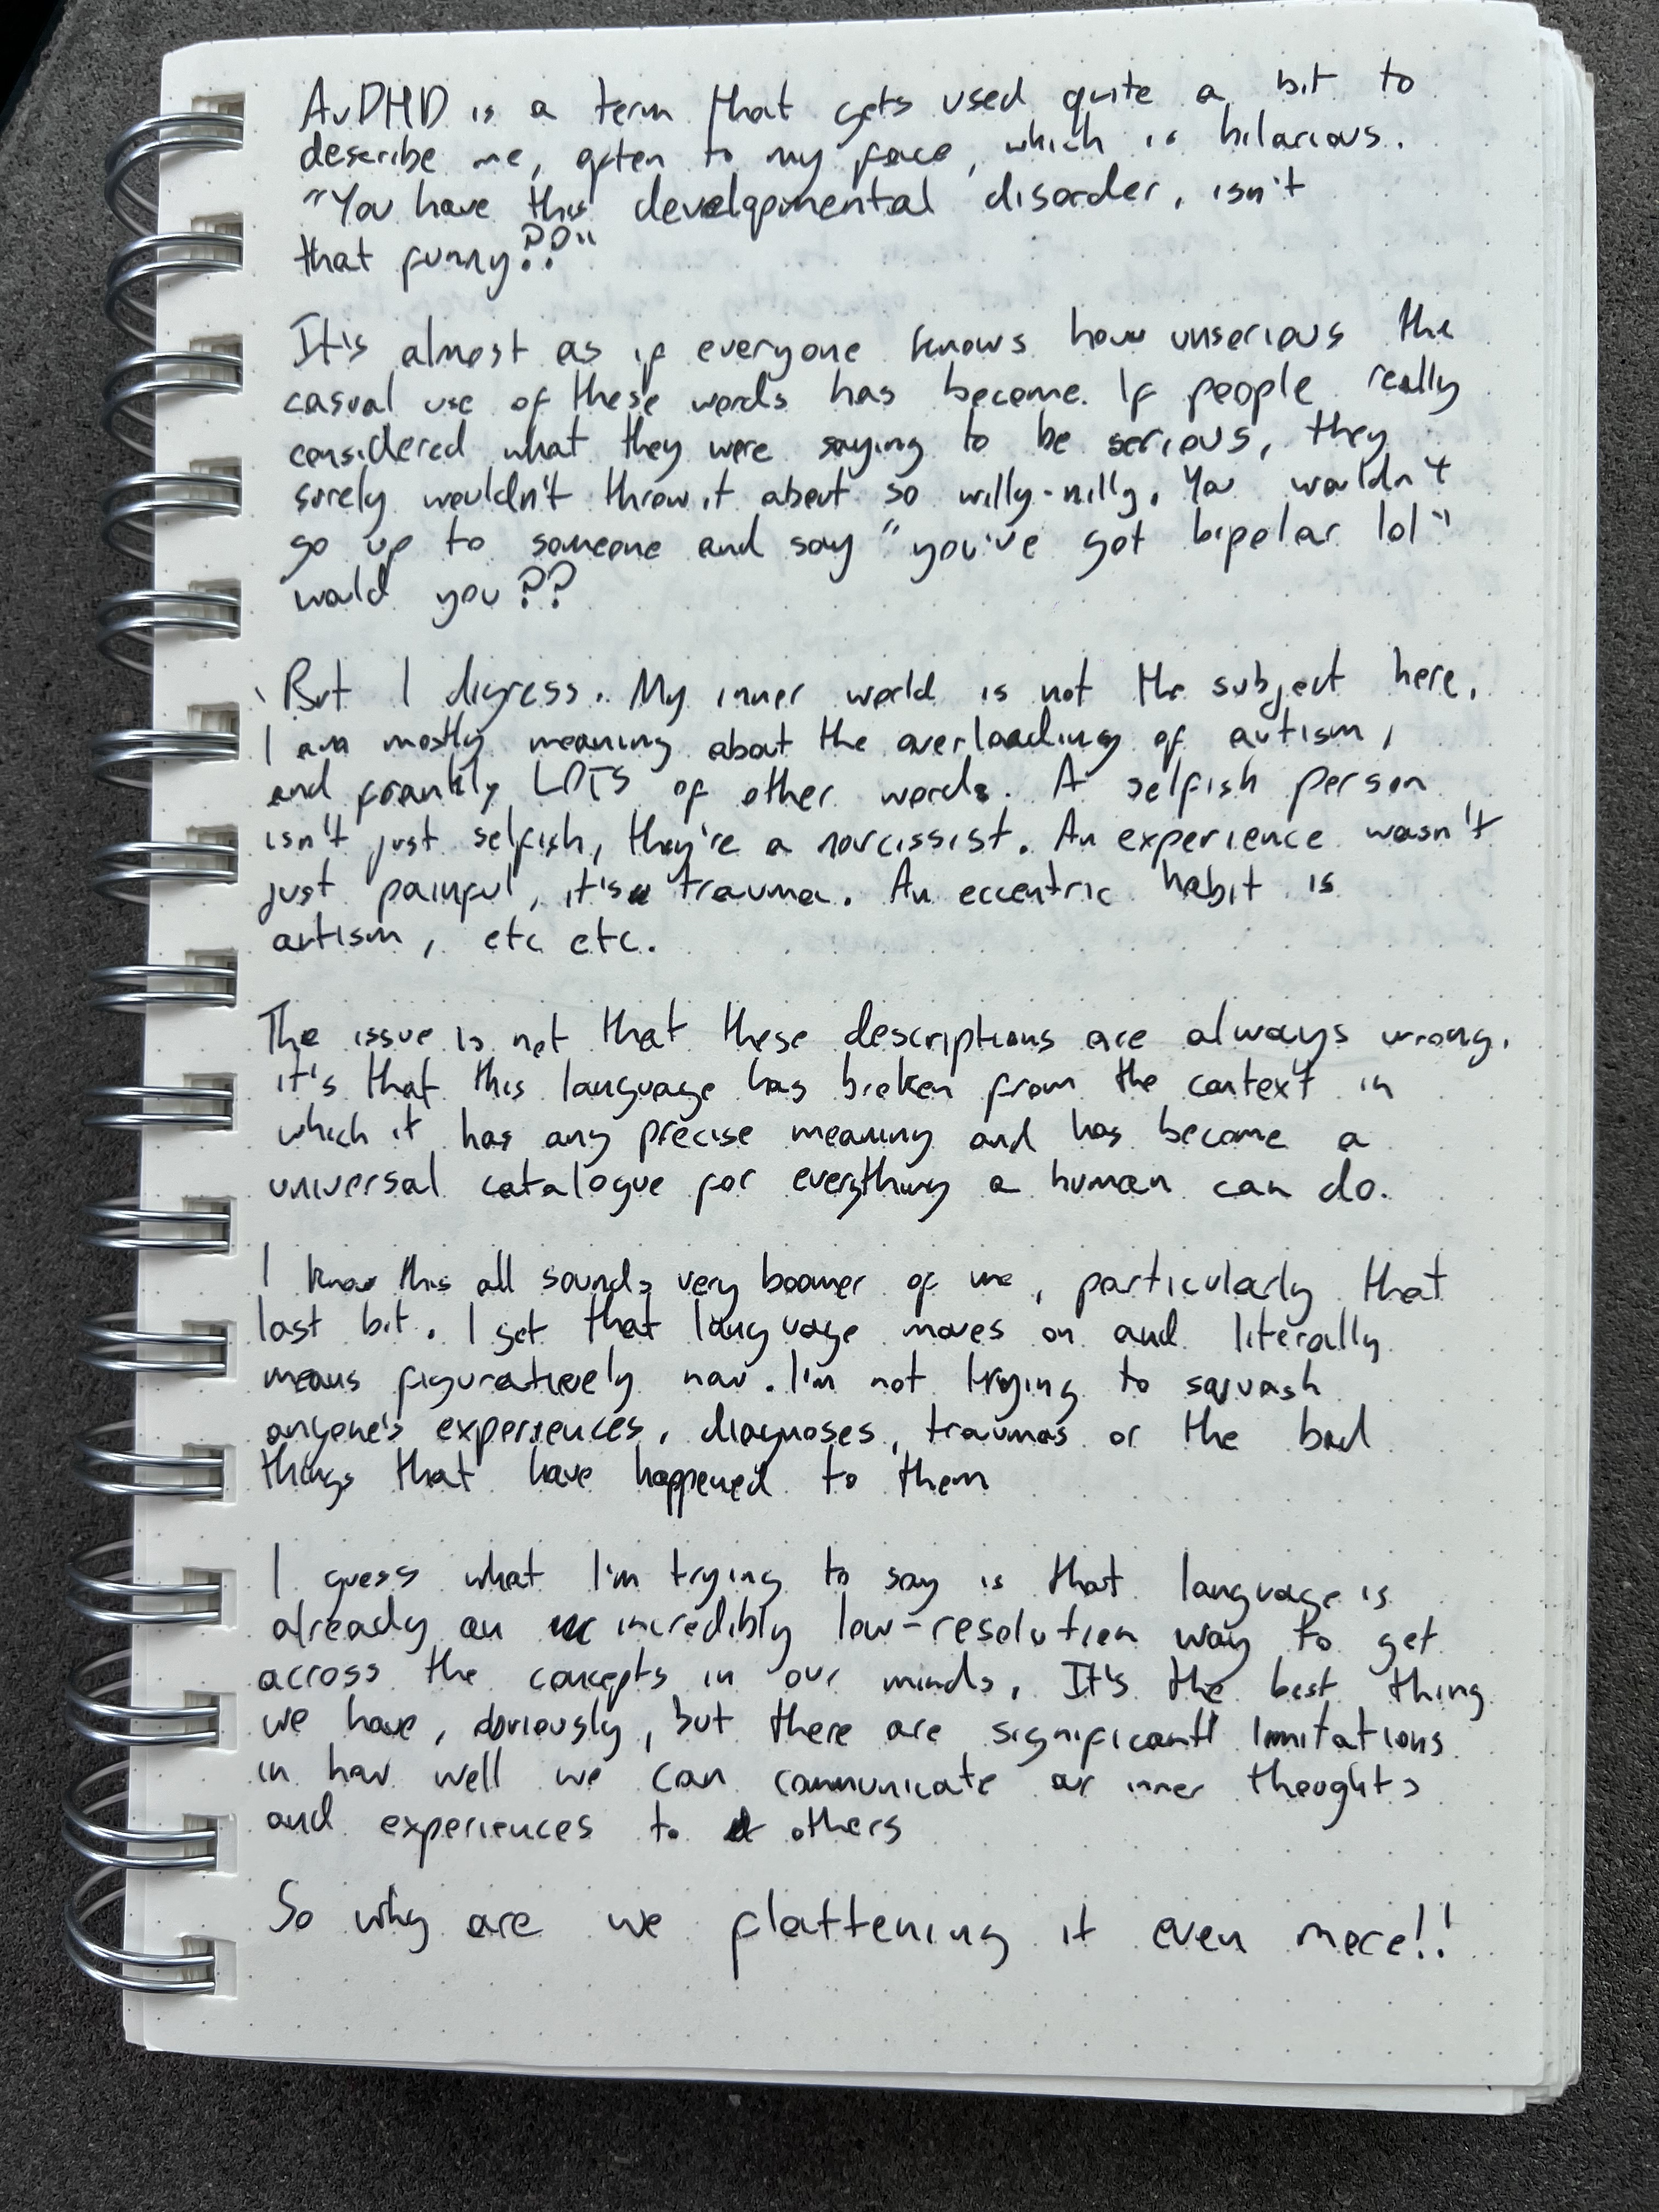 AuDHD is a term that gets used quite a bit to
describe me, often to my face, which is hilarious.
"You have this developmental disorder, isn't
that funny??"
It's almost as if everyone knows how unserious the
casual use of these words has become. If people really
considered what they were saying to be serious, they
surely wouldn't throw it about so willy-nilly. You wouldn't
go up to someone and say "you've got bipolar lol"
would you??
But I digress. My inner world is not the subject here.
I am mostly meaning about the overloading of autism,
and frankly LOTS of other words. A selfish person
isn't just selfish, they're a narcissist. An experience wasn't
just painful, it's trauma. An eccentric habit is
autism, etc etc.
The issue is not that these descriptions are always wrong.
it's that this language has broken from the context in
which it has any precise meaning and has become a
universal catalogue for everything a human can do.
I know this all sounds very boomer of me, particularly that
last bit. I get that language moves on and literally
means figuratively now. I'm not trying to squash
anyone's experiences, diagnoses, traumas or the bad
things that have happened to them
I guess what I'm trying to say is that language is
already an incredibly low-resolution way to get
across the concepts in our minds. It's the best thing
we have, obviously, but there are significant limitations
in how well we can communicate our inner thoughts
and experiences to others
So why are we flattening it even more!!